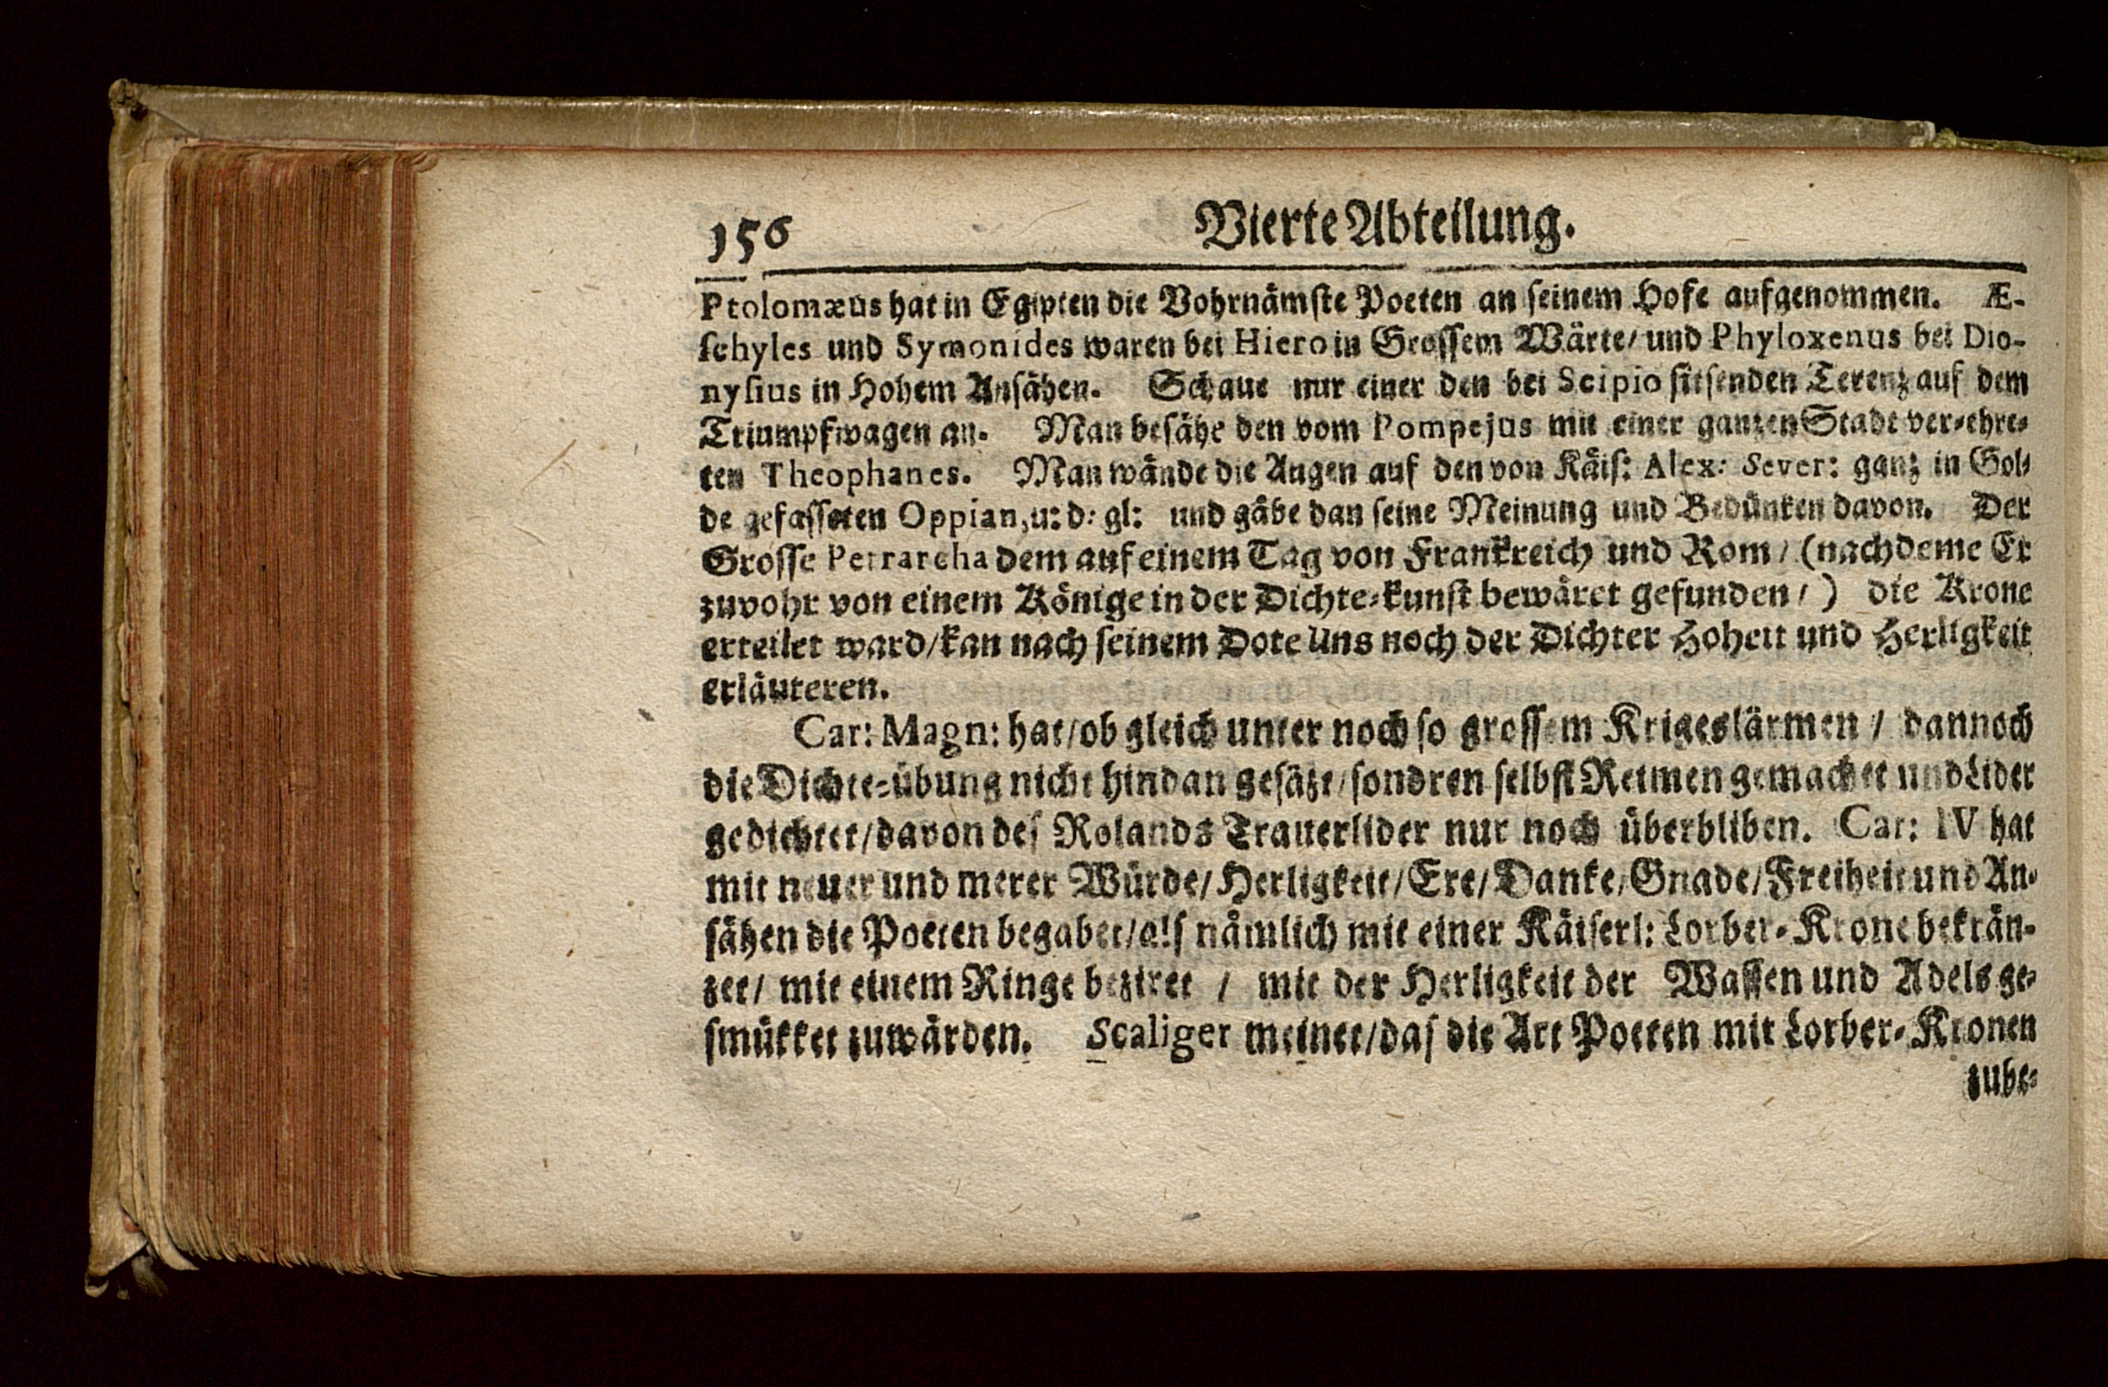 156 Vierte Abteilung.
Ptolomæus hat in Egipten die Vohrnämste Poeten an seinem Hofe aufgenommen. Æ-
schyles und Symonides waren bei Hiero in Grossem Wärte/ und Phyloxenus bei Dio-
nysius in Hohem Ansähen. Schaue nur einer den bei Scipio sitsenden Terenz auf dem
Triumpfwagen an. Man besähe den vom Pompejus mit einer ganzen Stadt ver-ehre-
ten Theophanes. Man wände die Augen auf den von Käis: Alex: Sever: ganz in Gol-
de gefasseten Oppian, u: d: gl: und gäbe dan seine Meinung und Bedünken davon. Der
Grosse Petrarcha dem auf einem Tag von Frankreich und Rom/ (nachdeme Er
zuvohr von einem Könige in der Dichte-kunst bewäret gefunden/) die Krone
erteilet ward/kan nach seinem Dote Uns noch der Dichter Hoheit und Herligkeit
erläuteren.
Car: Magn: hat/ob gleich unter noch so grossem Krigeslärmen / dannoch
die Dichte-übung nicht hindan gesäzt/sondren selbst Reimen gemachet und Lider
gedichtet/davon des Rolands Trauerlider nur noch überbliben. Car: IV hat
mit neuer und merer Würde/Herligkeit/Ere/Danke/Gnade/Freiheit und An-
sähen die Poeten begabet/als nämlich mit einer Käiserl: Lorber-Krone bekrän-
zet/ mit einem Ringe beziret / mit der Herligkeit der Waffen und Adels ge-
smükket zuwärden. Scaliger meinet/das die Art Poeten mit Lorber-Kronen
zube-